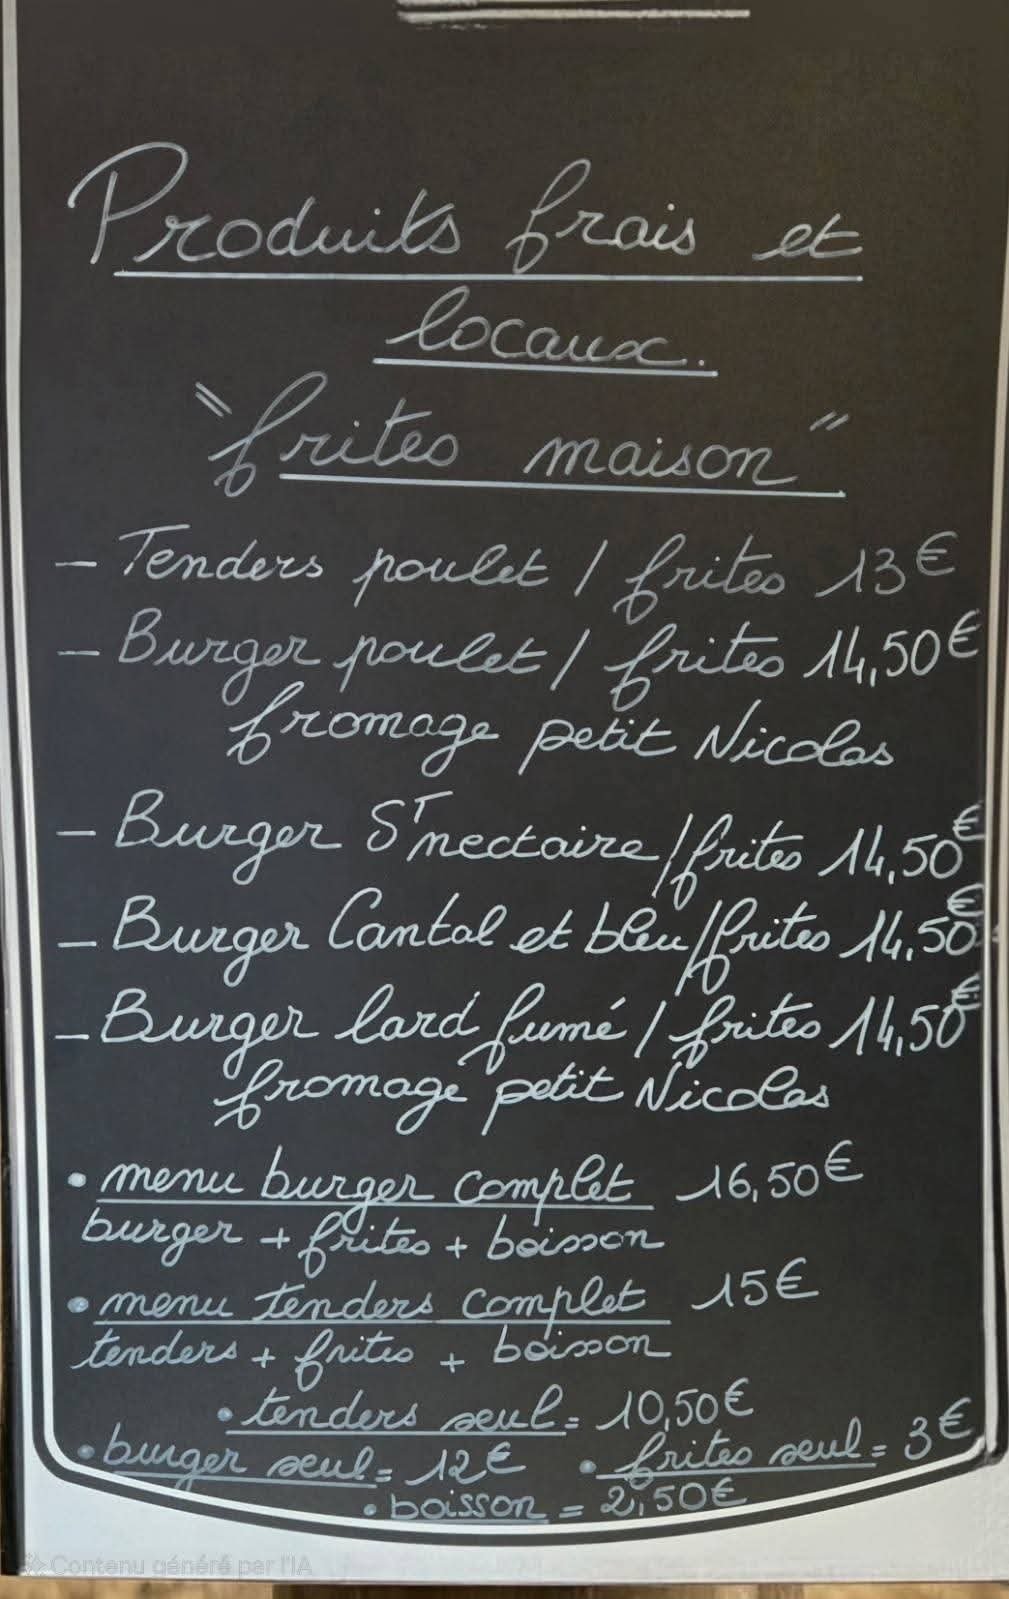 Produits frais et
locaux.
"frites maison"
- Tenders poulet / frites 13€
- Burger poulet / frites 14,50€
fromage petit Nicolas
- Burger ST nectaire / frites 14,50€
- Burger Cantal et bleu / frites 14,50€
- Burger lard fumé / frites 14,50€
fromage petit Nicolas
• menu burger complet 16,50€
burger + frites + boisson
• menu tenders complet 15€
tenders + frites + boisson
• tenders seul = 10,50€
• burger seul = 12€ • frites seul = 3€
• boisson = 2,50€
Contenu généré par l'IA